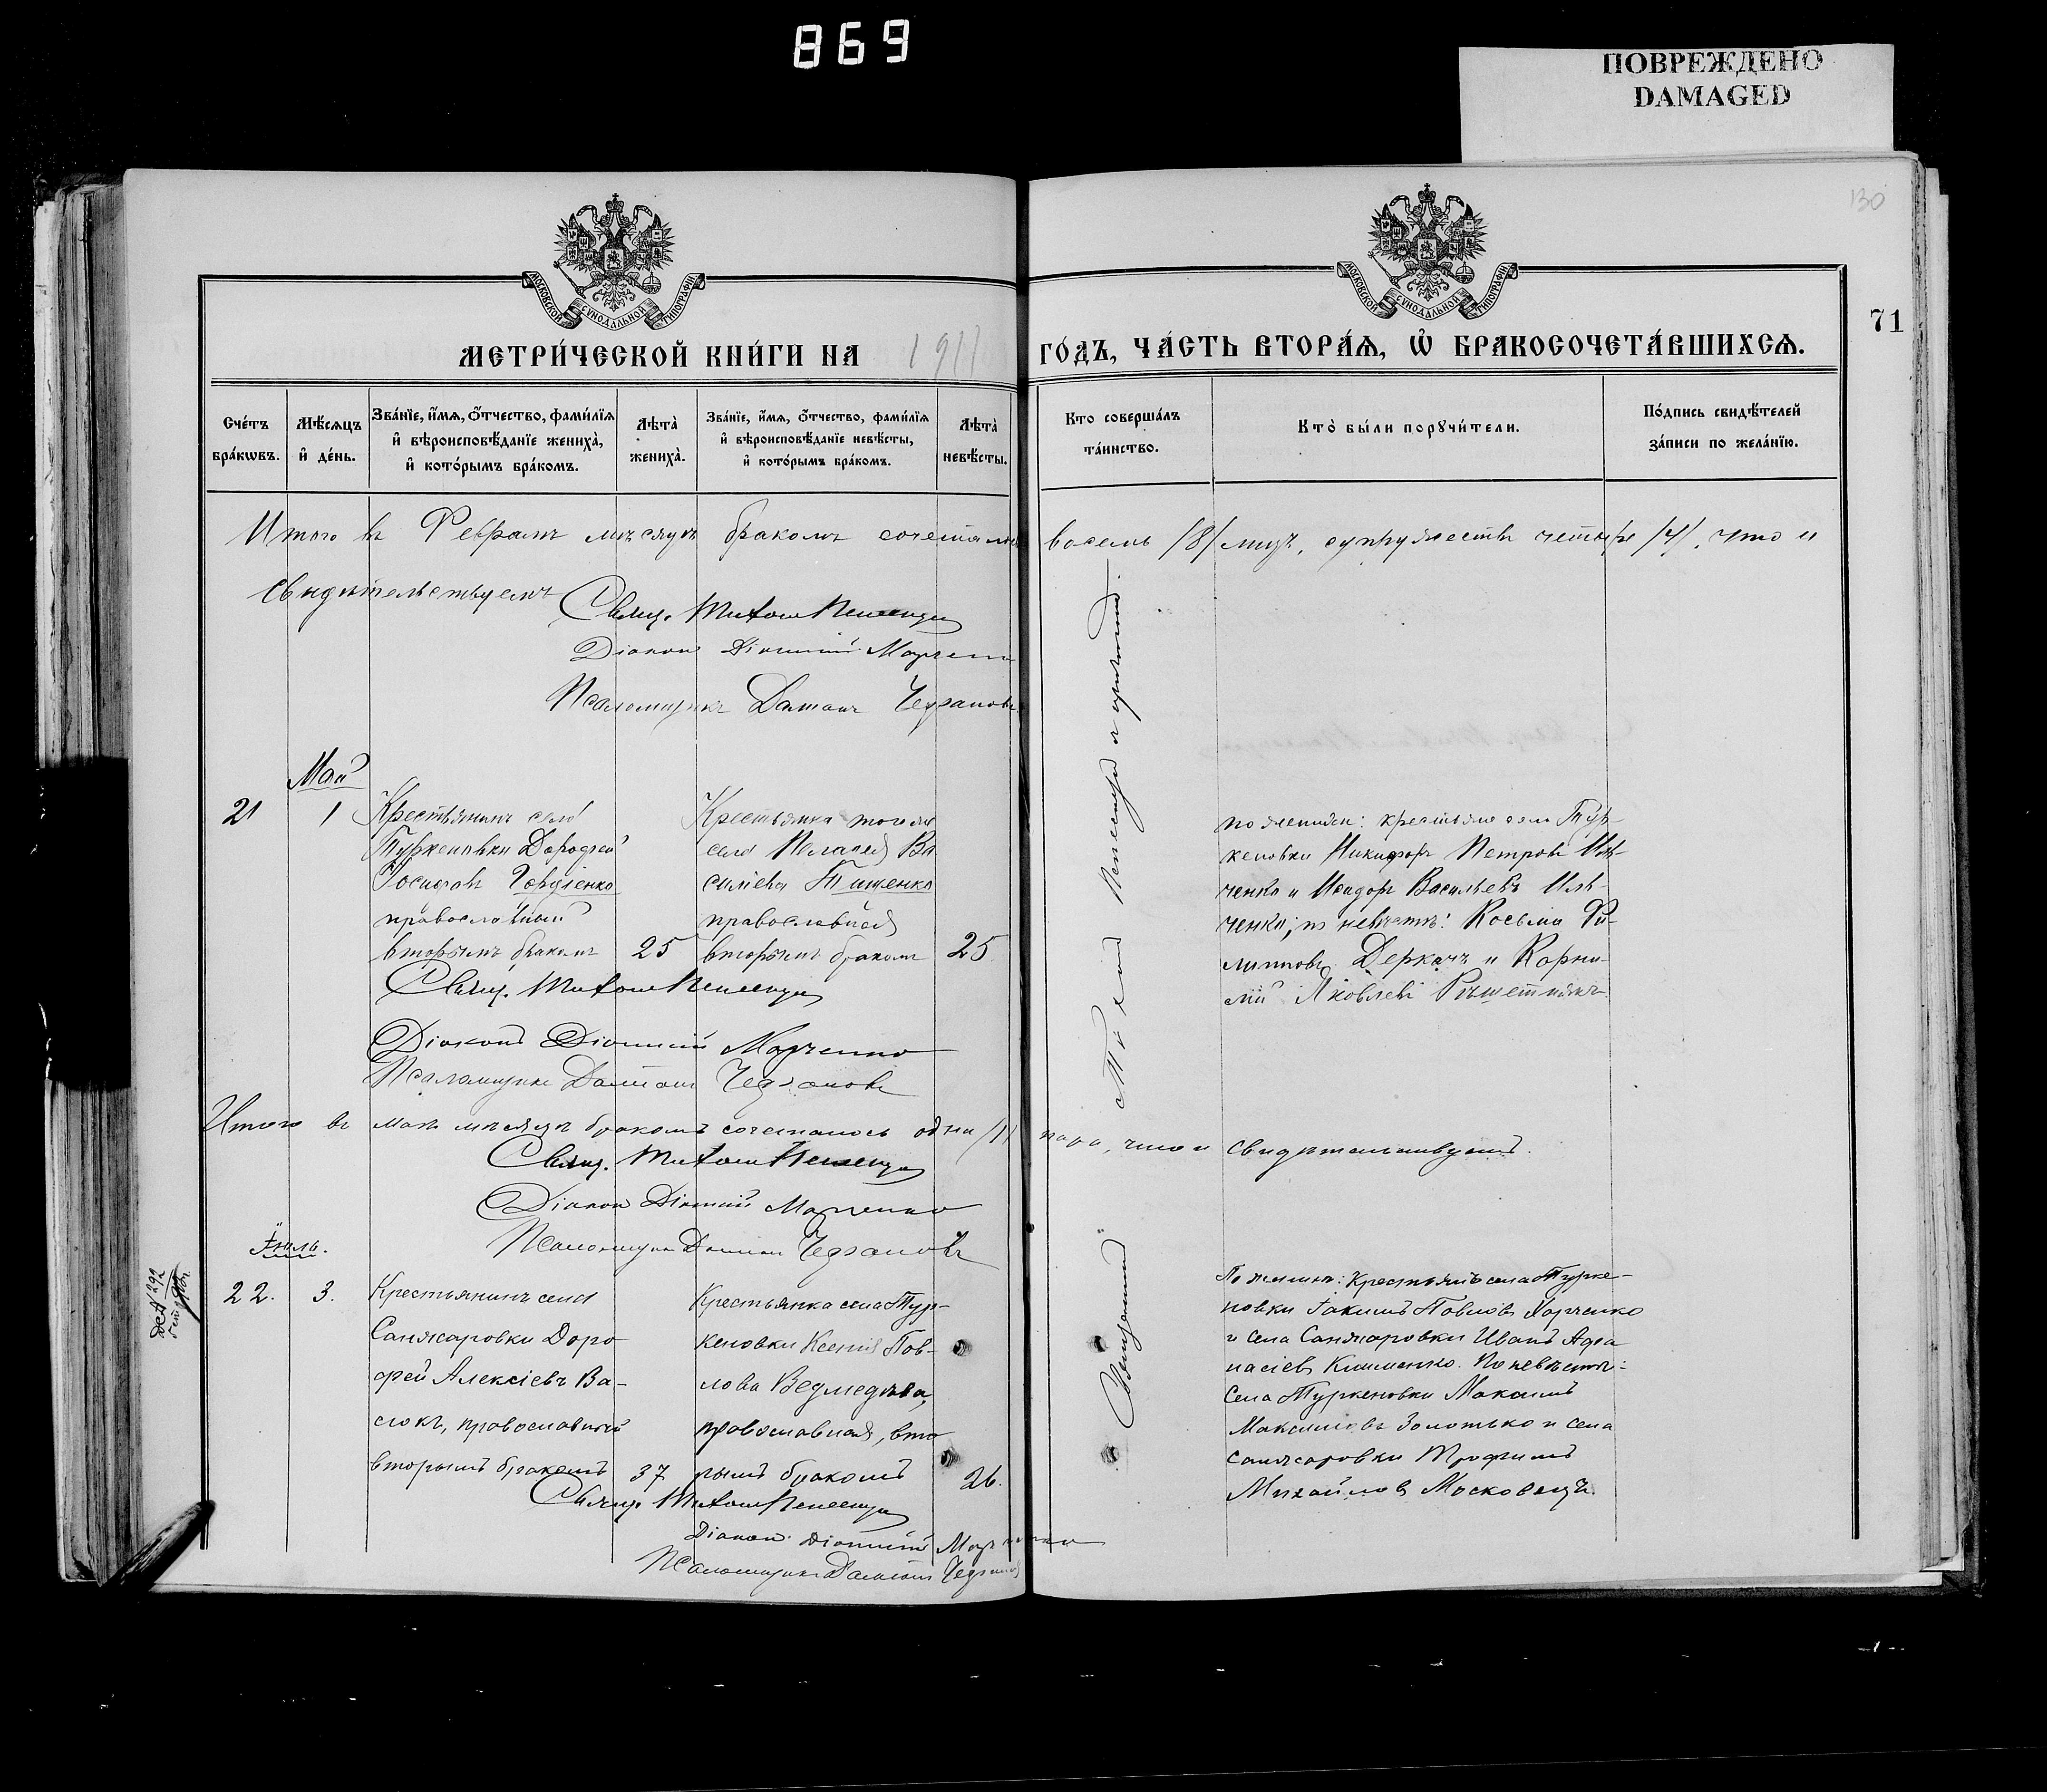 869
ПОВРЕЖДЕНО
DAMAGED
130
МОСКОВСКОЙ СѴНОДАЛЬНОЙ ТИПОГРАФІИ
МОСКОВСКОЙ СѴНОДАЛЬНОЙ ТИПОГРАФІИ
71
МЕТРИ́ЧЕСКОЙ КНИ́ГИ НА 1911 ГО́ДЪ, ЧА́СТЬ ВТОРА́Ѧ, Ѡ҆ БРАКОСОЧЕТА́ВШИХСѦ.
Сче́тъ бра́кѡвъ.
Мѣ́сѧцъ и҆ де́нь.
Зва́нїе, и҆́мѧ, ѻ҆́тчество, фами́лїѧ
и҆ вѣроисповѣ́данїе жениха̀,
и҆ кото́рымъ бра́комъ.
Лѣта̀ жениха̀.
Зва́нїе, и҆́мѧ, ѻ҆́тчество, фами́лїѧ
и҆ вѣроисповѣ́данїе невѣ́сты,
и҆ кото́рымъ бра́комъ.
Лѣта̀ невѣ́сты.
Кто соверша́лъ
та́инство.
Кто̀ бы́ли порꙋчи́тели.
По́дпись свидѣ́телей
за́писи по жела́нїю.
Итого въ Февралѣ мѣсяцѣ бракомъ сочеталось восемь /8/ лицъ, супружествъ четыре /4/, что и
свидѣтельствуемъ
Свящ.
Діаконъ Діонисій Марченко
Псаломщикъ Даміанъ
Май
21
1
Крестьянинъ села
Туркеновки Дорофей
Іосифовъ
православный
вторымъ бракомъ
25
Крестьянка того же
села Пелагея Ва
сильева Тищенко
православная
вторымъ бракомъ
25
по женихѣ: крестьяне села Тур-
кеновки Никифоръ Петровъ Иль-
ченко и Исидоръ Васильевъ Иль-
ченко; по невѣстѣ: Косьма Фи-
липповъ Деркачъ и Корни-
лій Яковлевъ Рѣшетнякъ
Свящ.
Діаконъ Діонисій Марченко
Псаломщикъ Даміанъ
Итого въ маѣ мѣсяцѣ бракомъ сочеталось одна /1/ пара, что и свидѣтельствуемъ.
Свящ.
Діаконъ Діонисій Марченко
Псаломщикъ Даміанъ
Іюль.
22.
3.
Крестьянинъ села
Санжаровки Доро-
фей Алексіевъ Ва-
сюкъ, православный
вторымъ бракомъ
37
Крестьянка села Тур-
кеновки Ксенія Пав-
лова Ведмедева,
православная, вто
рымъ бракомъ
26.
По женихѣ: Крестьянъ села Турке-
новки Іакимъ Павловъ Харченко
и села Санжаровки Иванъ Афа
насіевъ Клименко. По невѣстѣ:
села Туркеновки Максимъ
Максимовъ Золотько и села
Санжаровки Трофимъ
Михайловъ Московецъ.
Свящ.
Діаконъ Діонисій Марченко
Псаломщикъ Даміанъ
Священникъ